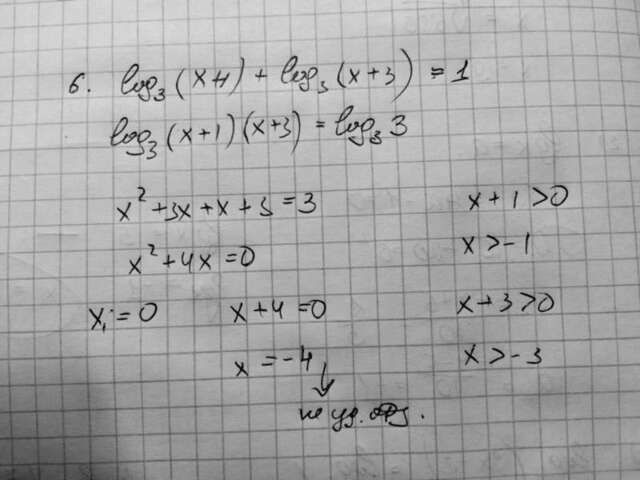 6. log₃(x+1) + log₃(x+3) = 1
log₃(x+1)(x+3) = log₃3
x² + 3x + x + 3 = 3
x + 1 > 0
x² + 4x = 0
x > -1
x₁ = 0
x + 4 = 0
x + 3 > 0
x = -4
x > -3
не уд.